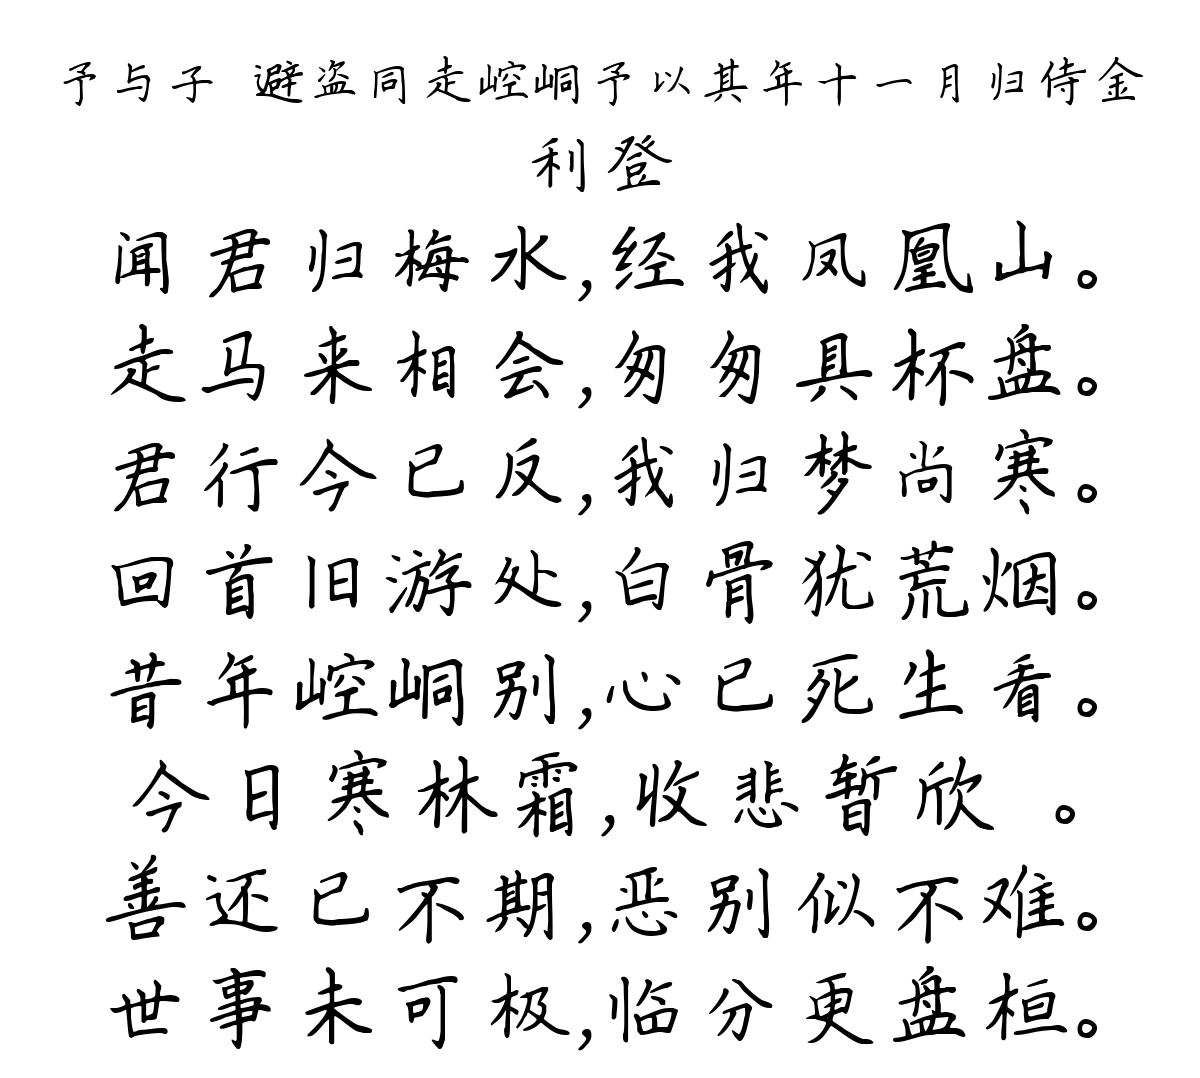 予与子 避盗同走崆峒予以其年十一月归侍金
利登
闻君归梅水,经我凤凰山。
走马来相会,匆匆具杯盘。
君行今已反,我归梦尚寒。
回首旧游处,白骨犹荒烟。
昔年崆峒别,心已死生看。
今日寒林霜,收悲暂欣 。
善还已不期,恶别似不难。
世事未可极,临分更盘桓。